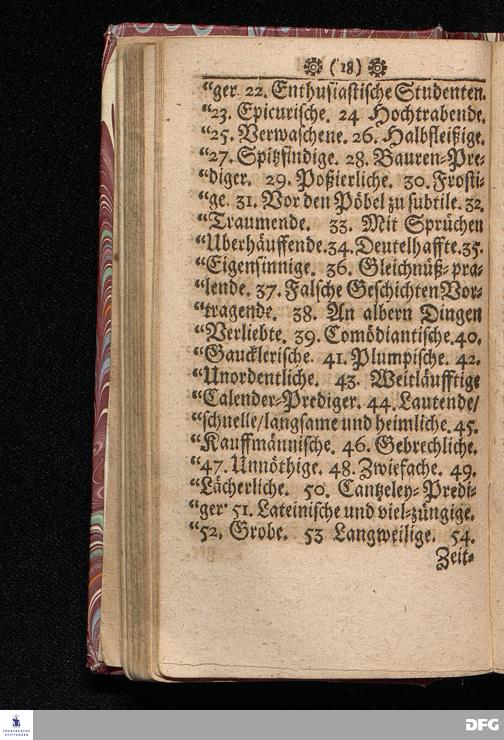 (18)
“ger 22. Enthusiastische Studenten.
“23. Epicurische. 24 Hochtrabende.
“25. Verwaschene. 26. Halbfleißige.
“27. Spitzfindige. 28. Bauren-Pre-
“diger. 29. Poßierliche. 30. Frosti-
“ge. 31. Vor den Pöbel zu subtile. 32.
“Traumende. 33. Mit Sprüchen
“Uberhäuffende. 34. Deutelhaffte. 35.
“Eigensinnige. 36. Gleichnüß-pra-
“lende. 37. Falsche Geschichten Vor-
“tragende. 38. An albern Dingen
“Verliebte. 39. Comödiantische. 40.
“Gaucklerische. 41. Plumpische. 42.
“Unordentliche. 43. Weitläufftige
“Calender-Prediger. 44. Lautende/
“schnelle/langsame und heimliche. 45.
“Kauffmännische. 46. Gebrechliche.
“47. Unnöthige. 48. Zwiefache. 49.
“Lächerliche. 50. Cantzeley-Predi-
“ger 51. Lateinische und viel-züngige.
“52. Grobe. 53 Langweilige. 54.
Zeit-
FRANCKESCHE
STIFTUNGEN
DFG